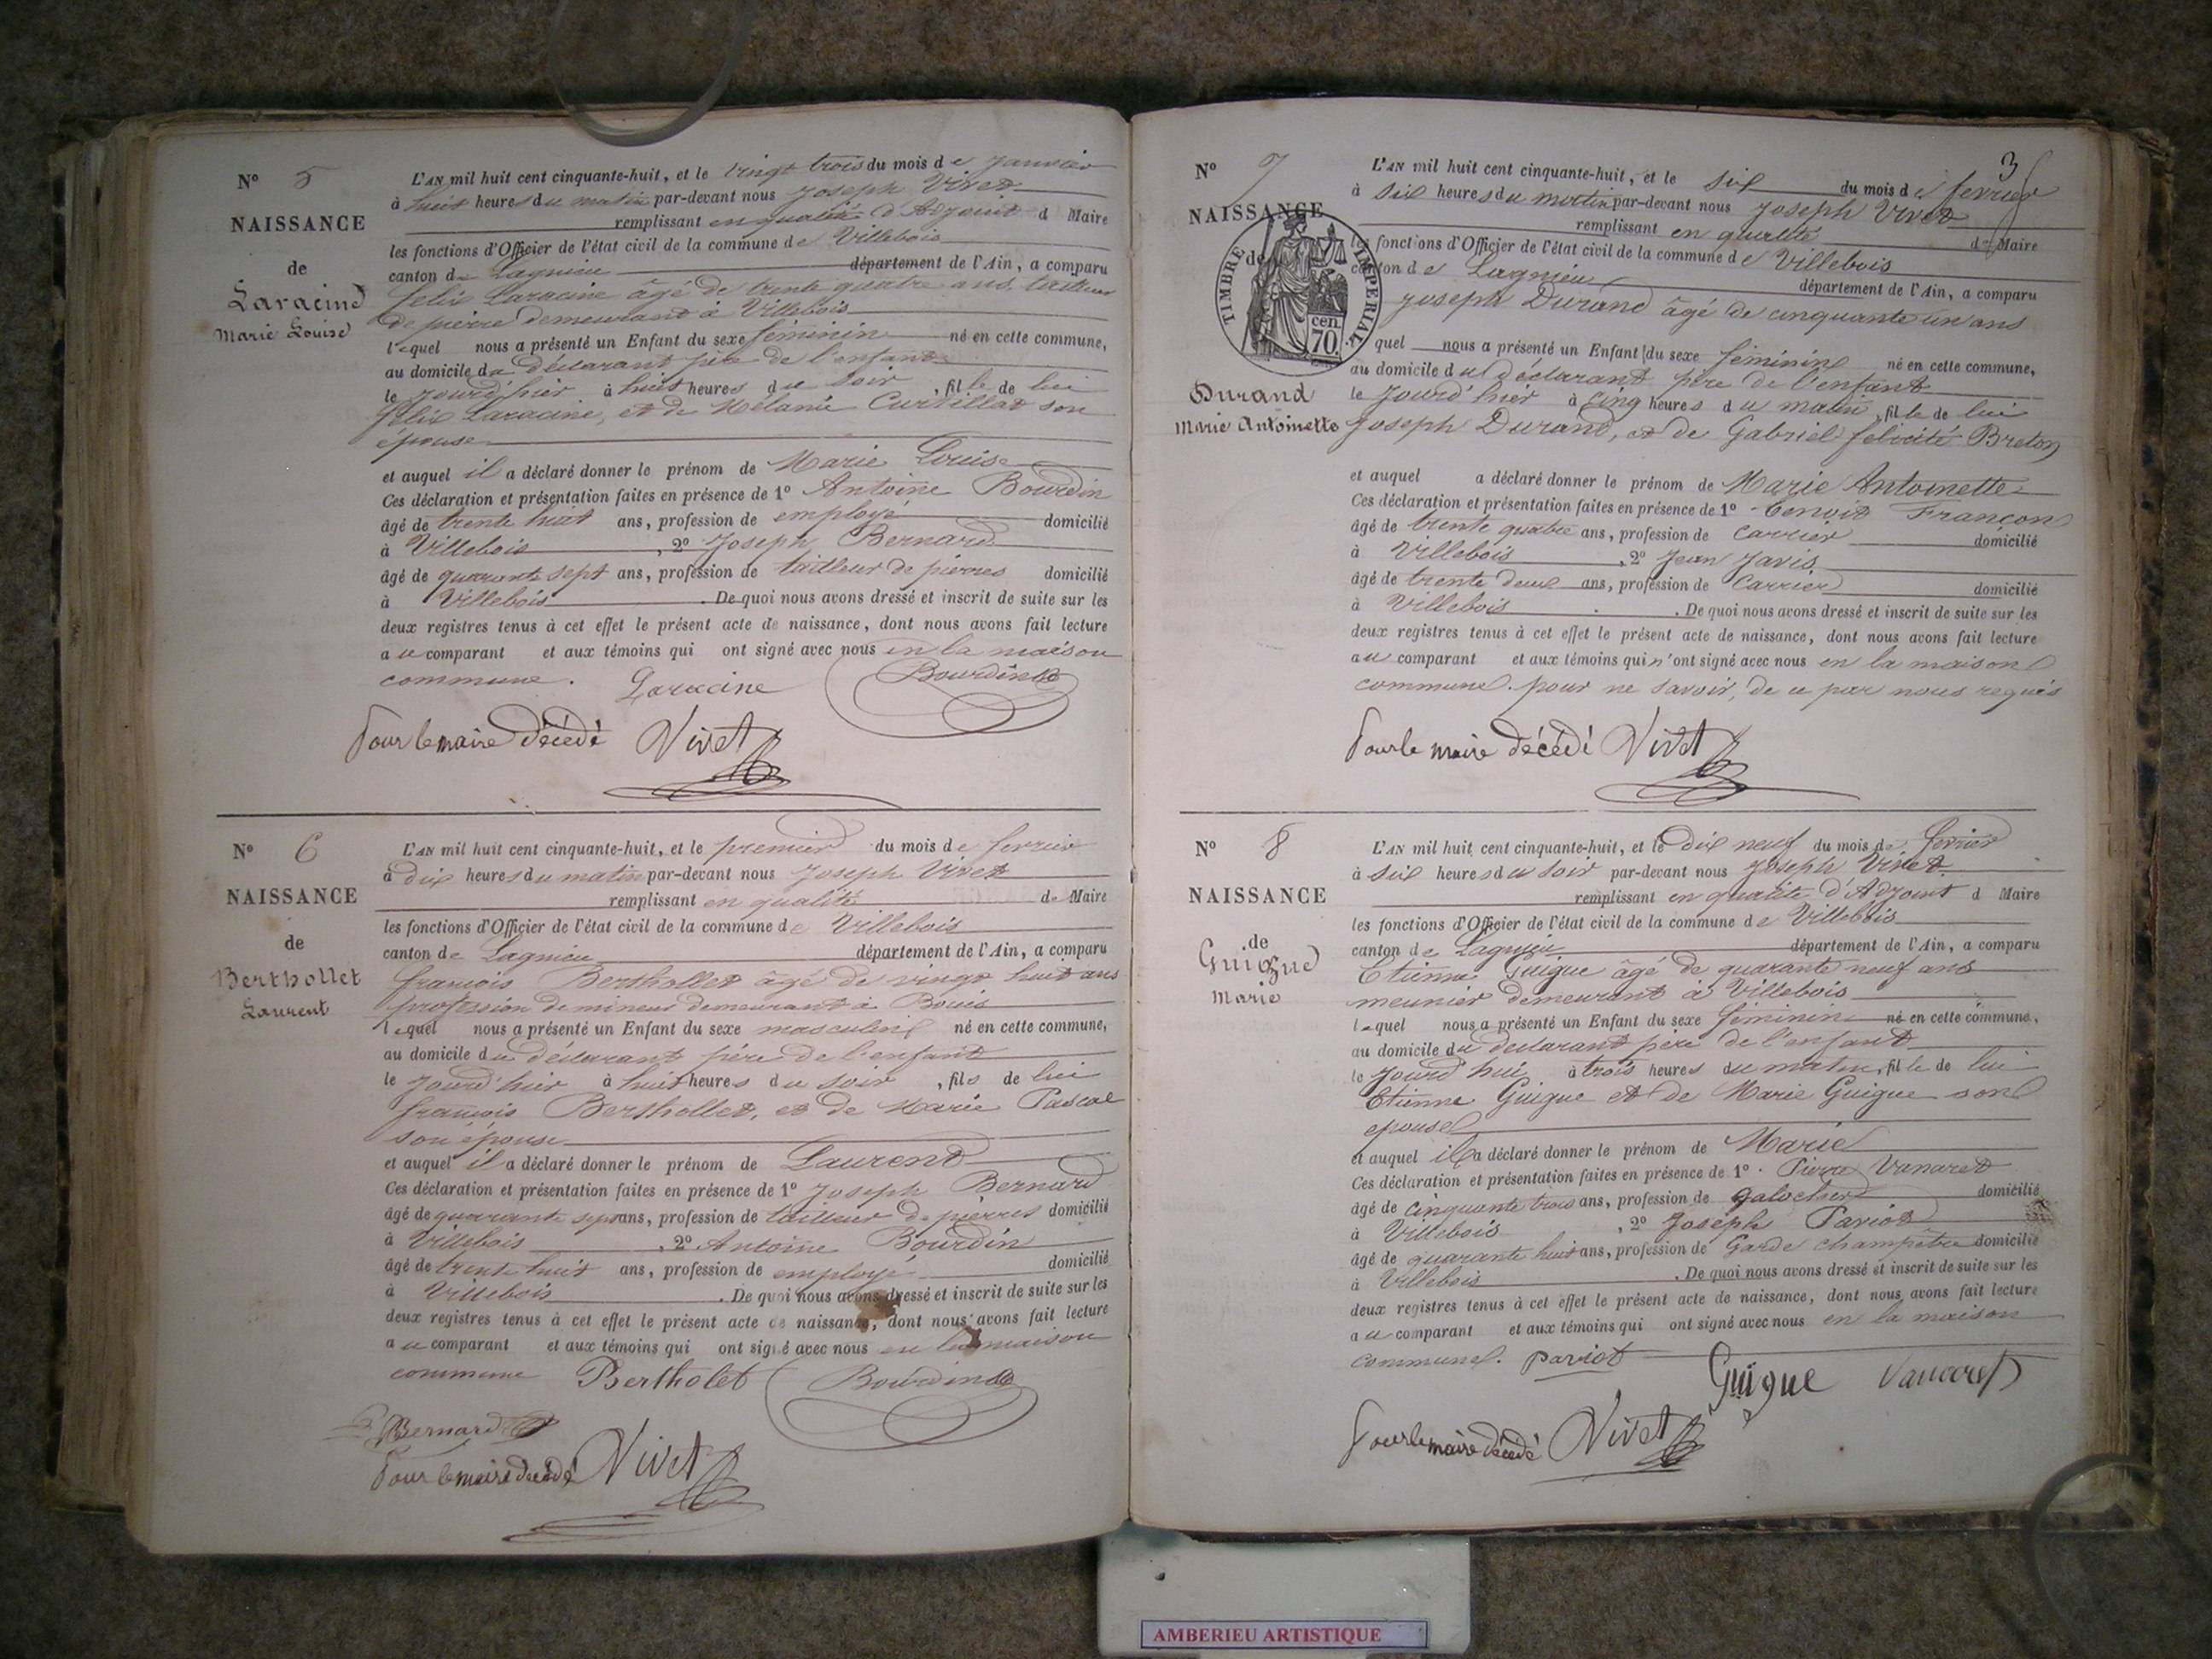 N° 5
NAISSANCE
de
Laracine
Marie Louise
L'AN mil huit cent cinquante-huit, et le vingt trois du mois de janvier
à huit heures du matin par-devant nous Joseph Vivet
remplissant en qualité d'Adjoint d Maire
les fonctions d'Officier de l'état civil de la commune de Villebois
canton de Lagnieu département de l'Ain, a comparu
felix Laracine âgé de trente quatre ans, tailleur
de pierre demeurant à Villebois
lequel nous a présenté un Enfant du sexe féminin né en cette commune,
au domicile du déclarant père de l'enfant
le jourd'hier à huit heures du soir, fille de lui
félix Laracine, et de Mélanie Curtillat son
épouse
et auquel il a déclaré donner le prénom de Marie Louise
Ces déclaration et présentation faites en présence de 1° Antoine Bourdin
âgé de trente huit ans, profession de employé domicilié
à Villebois, 2° Joseph Bernard
âgé de quarante sept ans, profession de tailleur de pierres domicilié
à Villebois. De quoi nous avons dressé et inscrit de suite sur les
deux registres tenus à cet effet le présent acte de naissance, dont nous avons fait lecture
au comparant et aux témoins qui ont signé avec nous en la maison
commune. Laracine Bourdin
Pour le maire décédé Vivet
N° 6
NAISSANCE
de
Berthollet
Laurent
L'AN mil huit cent cinquante-huit, et le premier du mois de fevrier
à dix heures du matin par-devant nous Joseph Vivet
remplissant en qualité de Maire
les fonctions d'Officier de l'état civil de la commune de Villebois
canton de Lagnieu département de l'Ain, a comparu
françois Berthollet âgé de vingt huit ans
profession de mineur demeurant à Bouis
lequel nous a présenté un Enfant du sexe masculin né en cette commune,
au domicile du déclarant père de l'enfant
le jourd'hier à huit heures du soir, fils de lui
françois Berthollet, et de Marie Pascal
son épouse
et auquel il a déclaré donner le prénom de Laurent
Ces déclaration et présentation faites en présence de 1° Joseph Bernard
âgé de quarante sept ans, profession de tailleur de pierres domicilié
à Villebois, 2° Antoine Bourdin
âgé de trente huit ans, profession de employé domicilié
à Villebois. De quoi nous avons dressé et inscrit de suite sur les
deux registres tenus à cet effet le présent acte de naissance, dont nous avons fait lecture
au comparant et aux témoins qui ont signé avec nous en la maison
commune Bertholet Bourdin
Bernard
Pour le maire décédé Vivet
3
N° 7
NAISSANCE
de
TIMBRE IMPERIAL
cen. 70.
Durand
Marie Antoinette
L'AN mil huit cent cinquante-huit, et le six du mois de fevrier
à six heures du matin par-devant nous Joseph Vivet
remplissant en qualité de Maire
les fonctions d'Officier de l'état civil de la commune de Villebois
canton de Lagnieu département de l'Ain, a comparu
Joseph Durand âgé de cinquante un ans
quel nous a présenté un Enfant du sexe féminin né en cette commune,
au domicile du déclarant père de l'enfant
le jourd'hier à cinq heures du matin, fille de lui
Joseph Durand, et de Gabriel felicité Breton
et auquel a déclaré donner le prénom de Marie Antoinette
Ces déclaration et présentation faites en présence de 1° Benoit Françon
âgé de trente quatre ans, profession de Carrier domicilié
à Villebois, 2° Jean Javis
âgé de trente deux ans, profession de Carrier domicilié
à Villebois. De quoi nous avons dressé et inscrit de suite sur les
deux registres tenus à cet effet le présent acte de naissance, dont nous avons fait lecture
au comparant et aux témoins qui n'ont signé avec nous en la maison
commune. pour ne savoir, de ce par nous requis
Pour le maire décédé Vivet
N° 8
NAISSANCE
de
Guigue
Marie
L'AN mil huit cent cinquante-huit, et le dix neuf du mois de fevrier
à six heures du soir par-devant nous Joseph Vivet
remplissant en qualité d'Adjoint d Maire
les fonctions d'Officier de l'état civil de la commune de Villebois
canton de Lagnieu département de l'Ain, a comparu
Etienne Guigue âgé de quarante neuf ans
meunier demeurant à Villebois
lequel nous a présenté un Enfant du sexe féminin né en cette commune.
au domicile du declarant père de l'enfant
le jourd'hui à trois heures du matin, fille de lui
Etienne Guigue et de Marie Guigue son
epouse
et auquel il a déclaré donner le prénom de Marie
Ces déclaration et présentation faites en présence de 1° Pierre Vanaret
âgé de cinquante trois ans, profession de galocher domicilié
à Villebois, 2° Joseph Pariot
âgé de quarante huit ans, profession de Garde champetre domicilié
à Villebois. De quoi nous avons dressé et inscrit de suite sur les
deux registres tenus à cet effet le présent acte de naissance, dont nous avons fait lecture
au comparant et aux témoins qui ont signé avec nous en la maison
commune. pariot Guigue Vanaret
Pour le maire décédé Vivet
AMBERIEU ARTISTIQUE